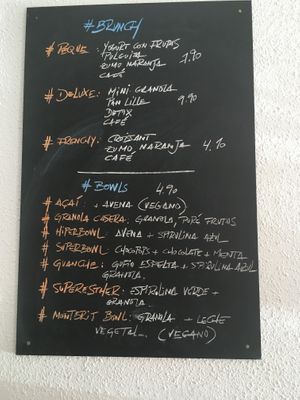 # BRUNCH
# PEQUE: YOGURT CON FRUTAS
PULGUITA
ZUMO NARANJA
CAFÉ
7.90
# DELUXE: MINI GRANOLA
PAN LILLE
DETOX
CAFÉ
9.90
# FRENCHY: CROISSANT
ZUMO NARANJA
CAFÉ
4.90
# BOWLS 4.90
# AÇAÍ: + AVENA (VEGANO)
# GRANOLA CASERA: GRANOLA, PURÉ FRUTAS
# HIPERBOWL: AVENA + SPIRULINA AZUL
# SUPERBOWL: CHOCOPOPS + CHOCOLATE + MENTA
# GUANCHE: GOFIO ESPELTA + SPIRULINA AZUL
GRANOLA.
# SUPERESTHER: ESPIRULINA VERDE +
GRANOLA.
# BOWL: GRANOLA + LECHE
VEGETAL... (VEGANO)